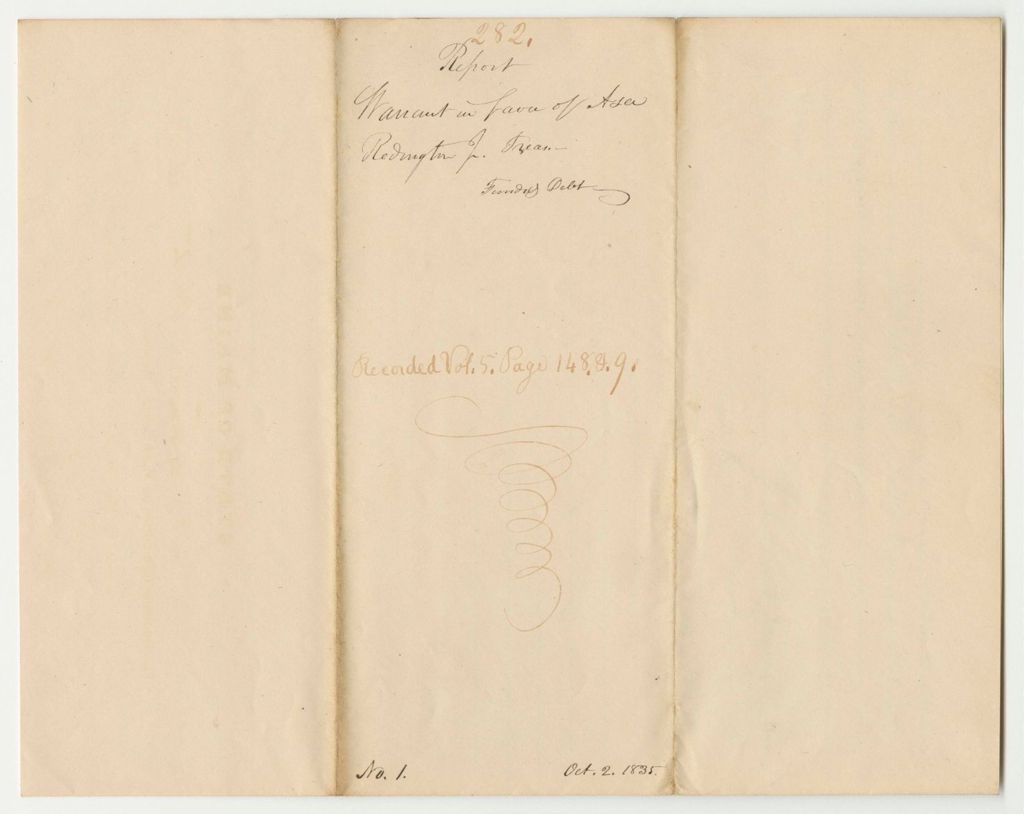 282.
Report
Warrant in favor of Asa
Redington Jr. Treas.
Funded Debt
Recorded Vol. 5. Page 148.&.9.
No. 1.
Oct. 2. 1835.